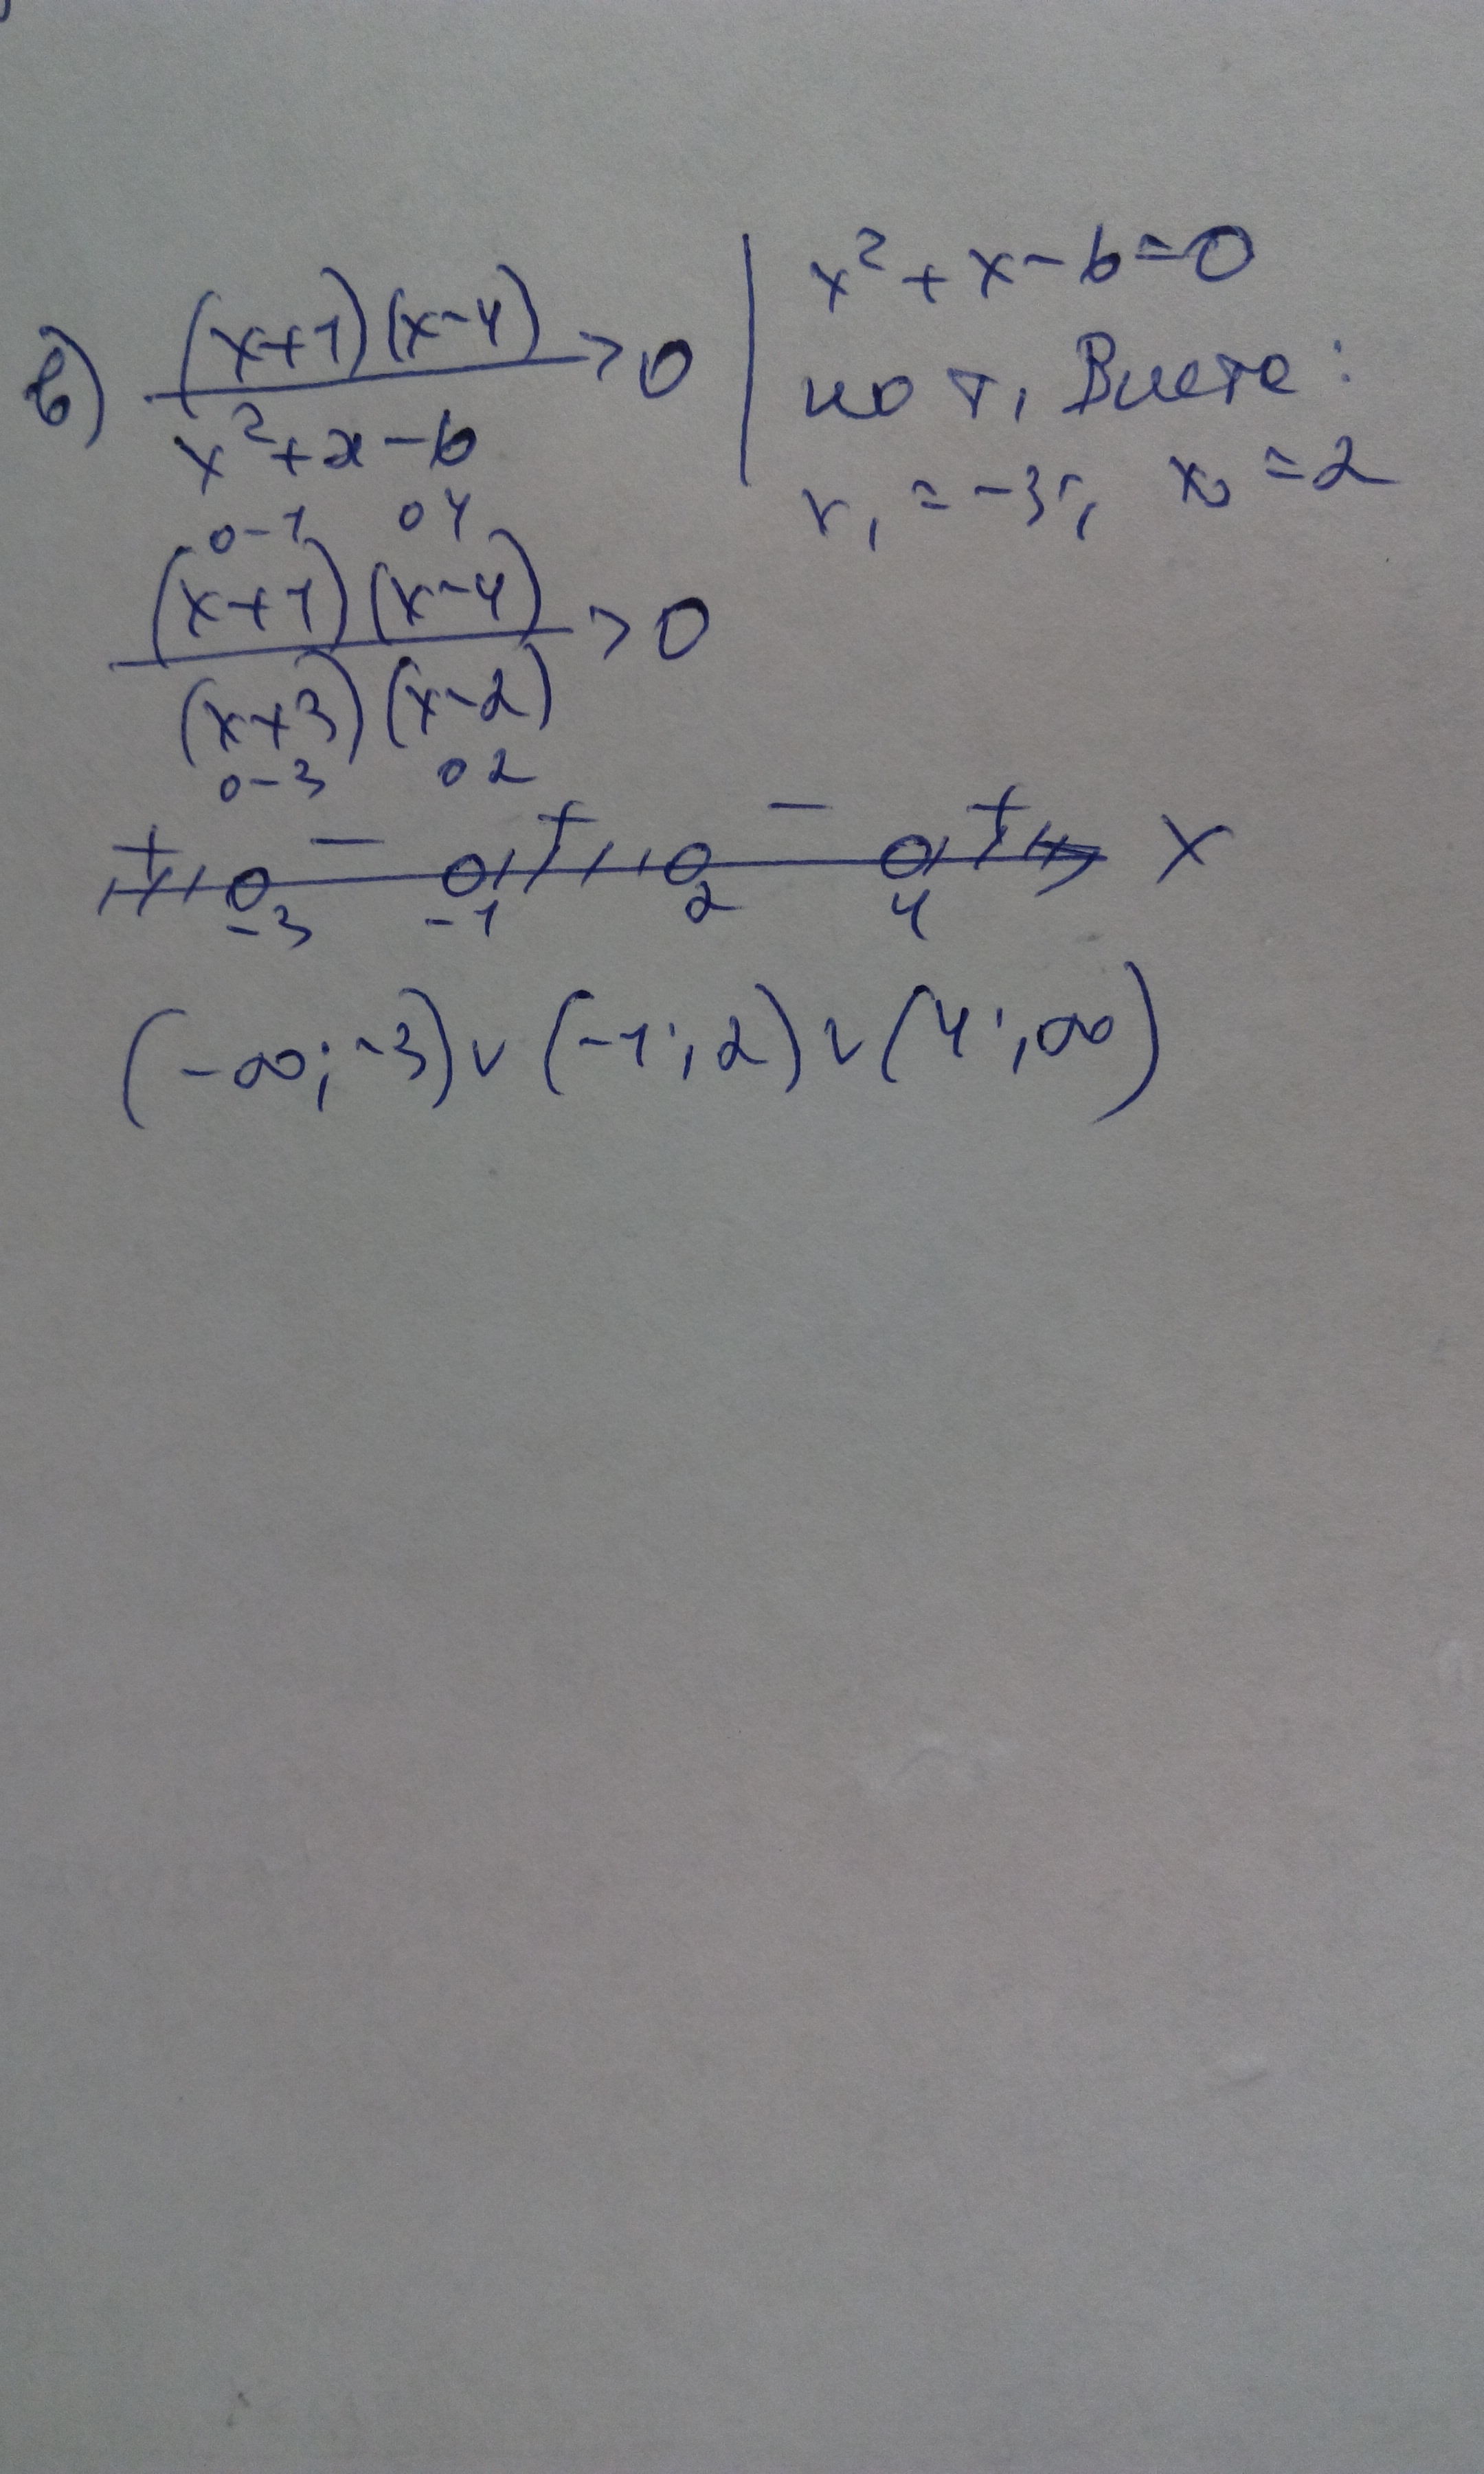 в) (x+1)(x-4) / x²+x-6 >0
x²+x-6=0
по т, Виета:
x₁=-3; x₂=2
0-1 04
(x+1)(x-4) / (x+3)(x-2) >0
0-3 02
+ - + - +
-3 -1 2 4 x
(-∞;-3)∨(-1;2)∨(4;∞)